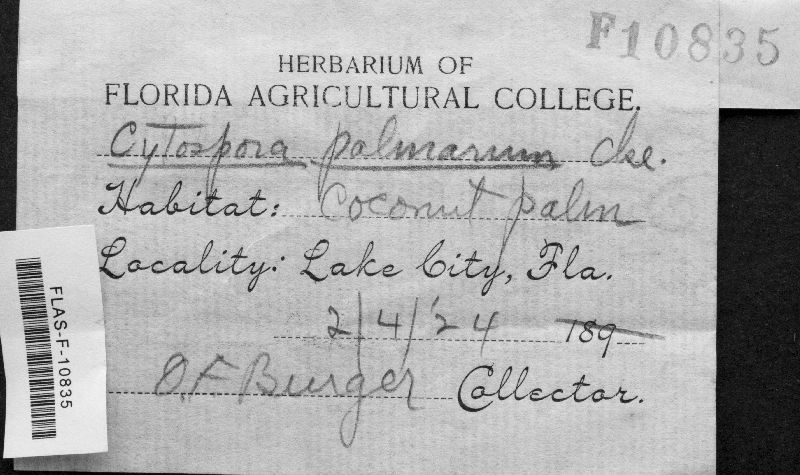 F10835
HERBARIUM OF
FLORIDA AGRICULTURAL COLLEGE.
Cytospora palmarum Cke.
Habitat: Coconut palm
Locality: Lake City, Fla.
2/4/'24 189
O.F. Burger Collector.
FLAS-F-10835